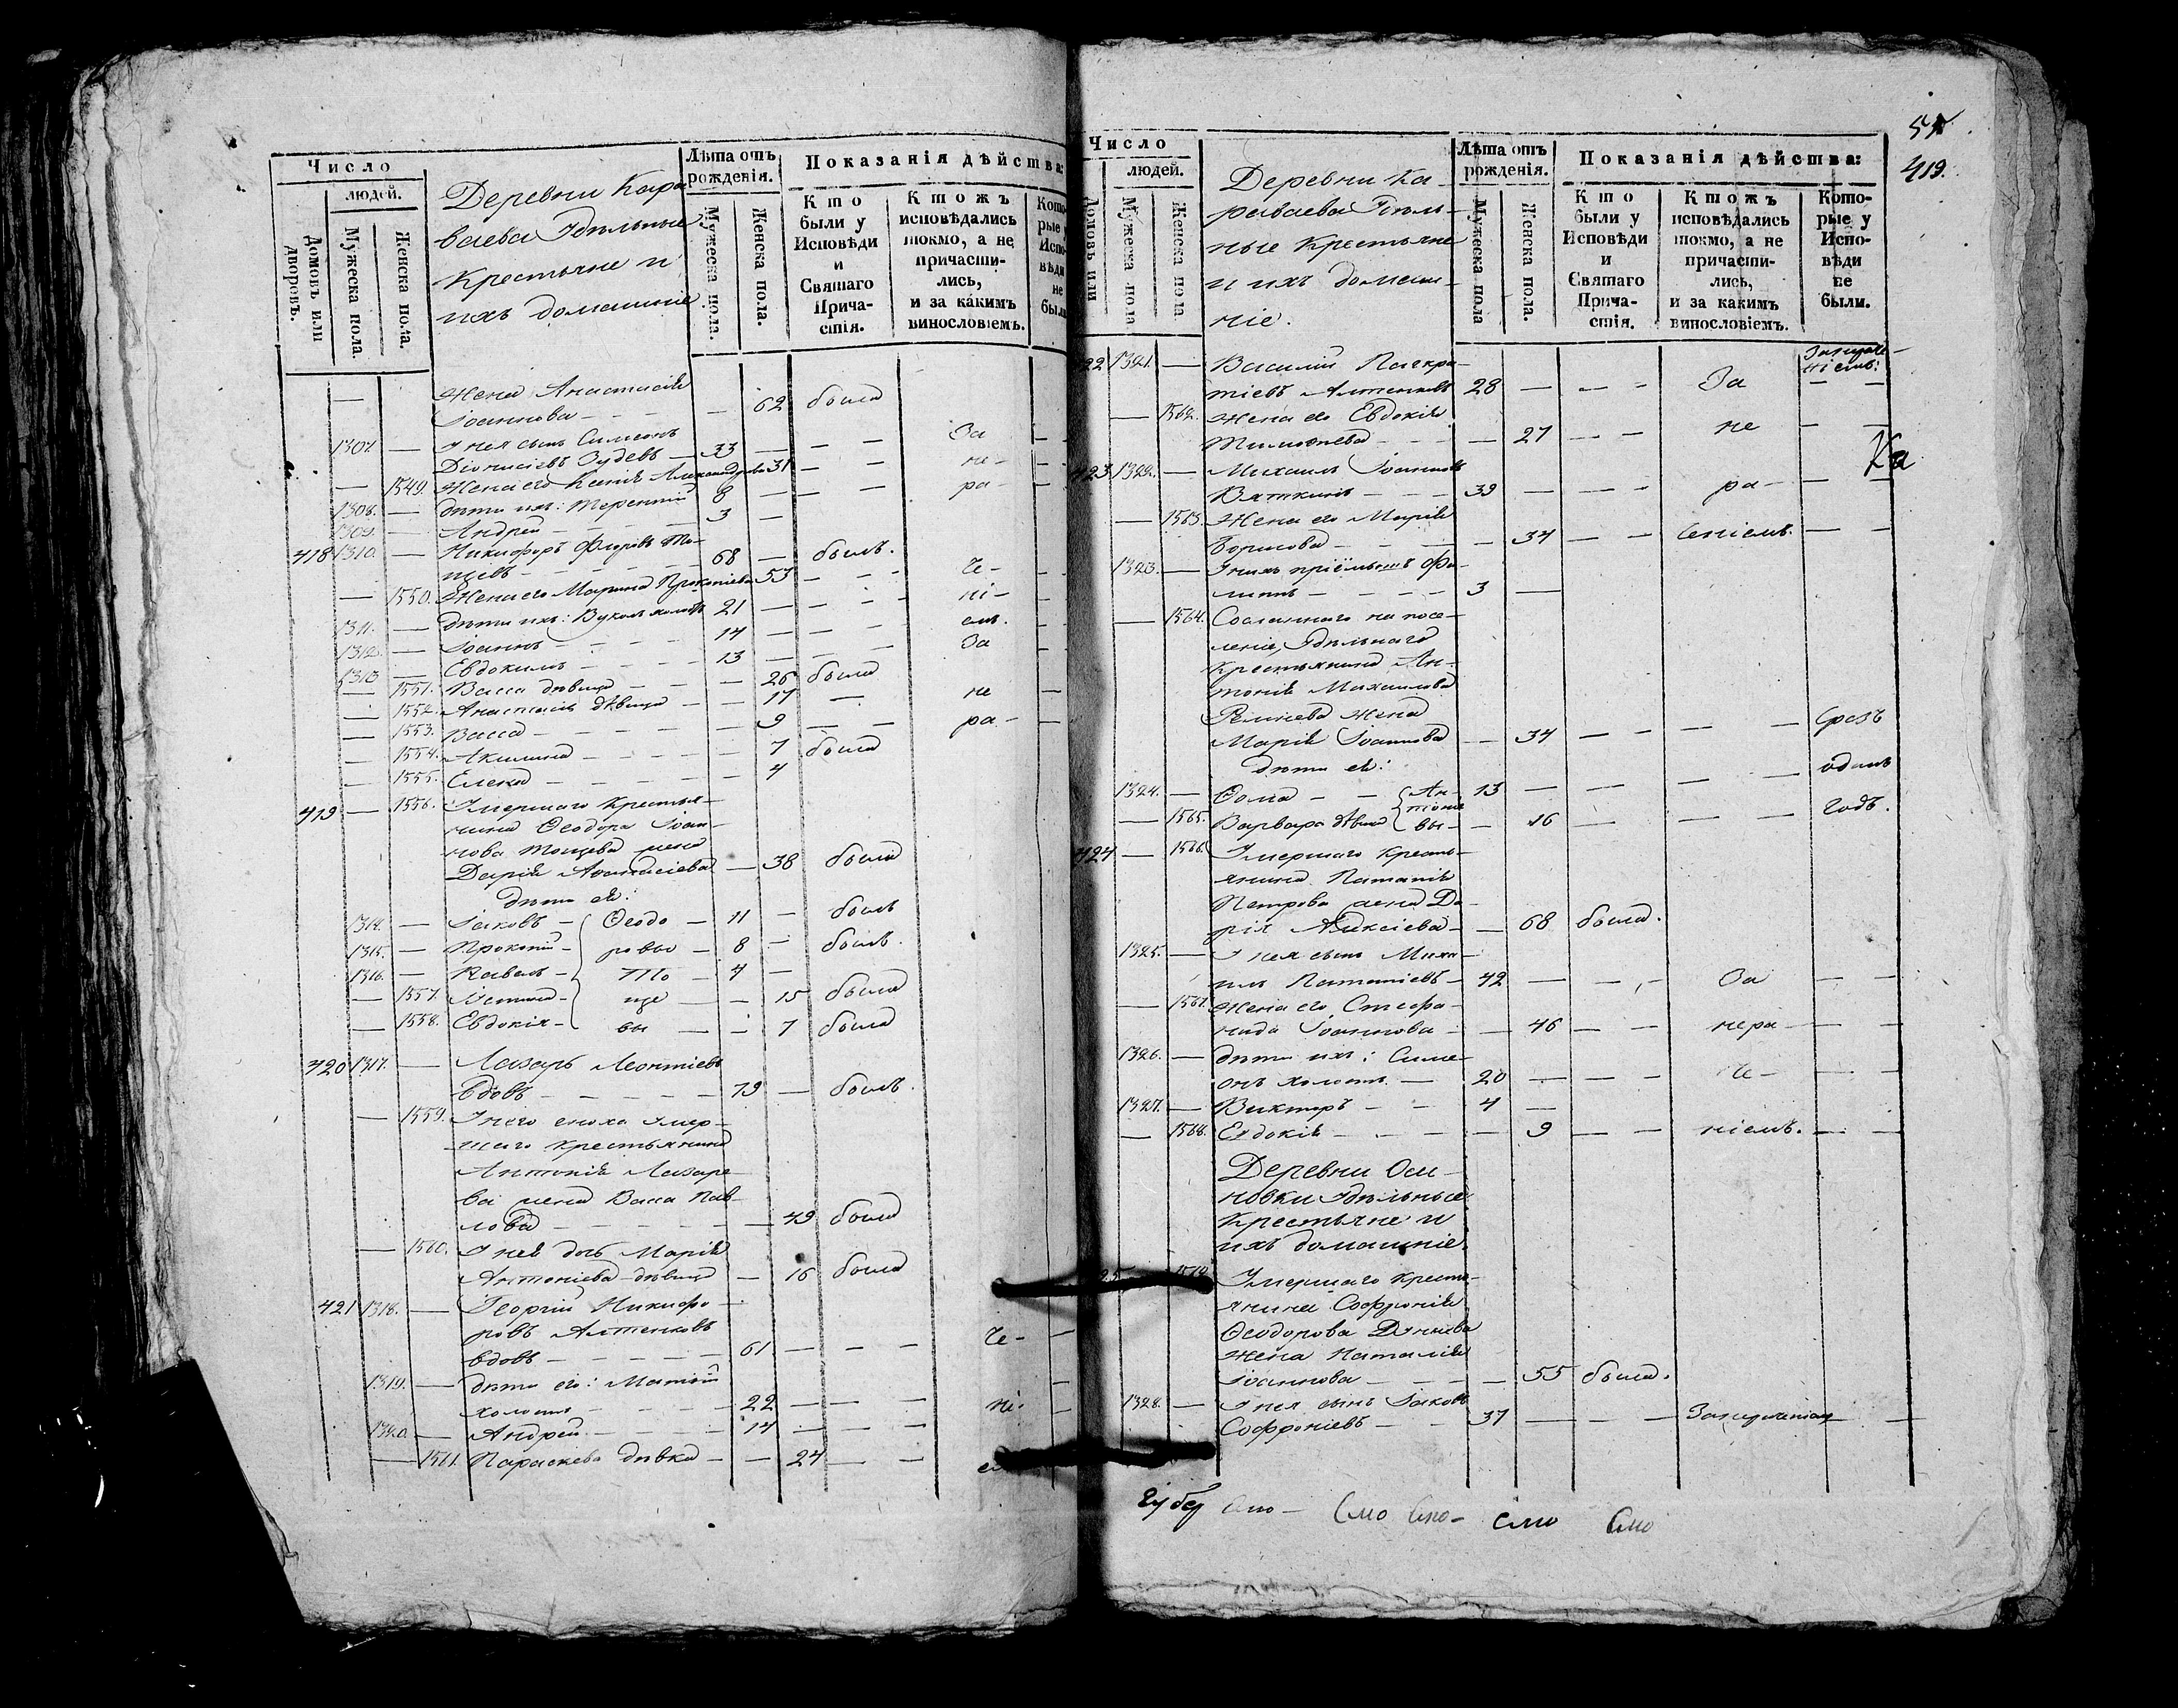 Число
людей.
Домовъ или дворовъ.
Мужеска пола.
Женска пола.
Деревни Кара
ваева Удѣльные
Крестьяне и
ихъ домашніе
Лѣта отъ рожденія.
Мужеска пола.
Женска пола.
Показанія дѣйства:
Кто были у Исповѣди и Святаго Причастія.
Ктожъ исповѣдались токмо, а не причастились, и за какимъ винословіемъ.
Которые у Исповѣди не были
Жена Анастасія
Іоаннова — 62 была
1307. — У нея сынъ Симеонъ За
Діонисіевъ — 33 —
— 1549. Жена его Ксенія Александрова 31 — не-
1308. — дѣти ихъ: Терентій 8 — ра-
1309. — Андрей — 3 —
418 1310. — Никифоръ Флоровъ То-
щевъ — 68 — былъ.
— 1550. Жена его Марина Прокопіева 53 — че-
1311. — дѣти ихъ: Вуколъ холостъ 21 — ні-
1312. — Іоаннъ — 14 — емъ.
1313 — Евдокимъ — 13 — За
— 1551. Васса дѣвица — 26 была
— 1552. Анастасія дѣвица — 17 — не
— 1553. Васса — 9 — ра-
— 1554. Акилина — 7 была
— 1555. Елена — 4
419 — 1556. Умершаго Крестья-
нина Ѳеодора Іоан-
нова Тощева жена
Дарія Аѳанасіева — 38 была
дѣти ея:
1314. — Іаковъ — Ѳеодо — 11 — былъ
1315. — Прокопій — ровы — 8 — былъ.
1316. — Павелъ — То — 4 —
— 1557. Устина — ще — 15 была
— 1558. Евдокія — вы — 7 была
420 1317. — Лазарь Леонтіевъ
вдовъ — 79 — былъ.
— 1559. У него сноха умер-
шаго крестьянина
Антонія Лазаре
ва жена Васса Пав
лова — 49 была
— 1560. У нея дочь Марія
Антоніева дѣвица — 16 была
421 1318. — Георгій Никифо-
ровъ Алтенковъ
вдовъ — 61 — че-
1319. — дѣти его: Матѳій
холостъ — 22 — ні-
1320. — Андрей — 14 —
— 1561. Параскева дѣвка — 24 —
57
419.
Число
людей.
Домовъ или
Мужеска пола
Женска пола
Деревни Ка-
раваева Удѣль-
ные Крестьяне
и ихъ домаш-
ніе.
Лѣта отъ рожденія.
Мужеска пола
Женска пола.
Показанія дѣйства:
Кто были у Исповѣди и Святаго Причастія.
Ктожъ исповѣдались токмо, а не причастились, и за какимъ винословіемъ.
Которые у Исповѣди не были.
22 1321. — Василій Панкра-
тіевъ Алтенковъ 28 — За
— 1562. Жена его Евдокія
Тимоѳеева — 27 — не
423 1322. — Михаилъ Іоанновъ
Вяткинъ — 39 — ра-
Ка
— 1563. Жена его Марія
Борисова — 34 — ченіемъ.
1323. — У нихъ пріемышъ Фи-
липпъ — 3 —
— 1564. Сосланнаго на посе-
леніе, Удѣльнаго
Крестьянина Ан-
тонія Михаилова
жена
Марія Іоаннова — 34 — Сразъ
дѣти ея: одинъ
1324. — Ѳома — Ан- 13 —
тоніе
— 1565. Варвара дѣвица вы — 16 — годъ.
424 — 1566. Умершаго Кресть-
янина Потапія
Петрова жена Да-
рія Алексіева — 68 была.
1325. — У нея сынъ Миха-
илъ Потапіевъ — 42 — За
— 1567. Жена его Стефа-
нида Іоаннова — 46 — нера-
1326. — дѣти ихъ: Симе-
онъ холостъ. — 20 — че-
1327. — Викторъ — 4 —
— 1568. Евдокія — 9 — ніемъ.
Деревни Оси-
новки Удѣльные
Крестьяне и
ихъ домашніе.
25 Умершаго Кресть-
янина Софронія
Ѳеодорова
жена Наталія
Іоаннова — 55 была.
1328. — У нея сынъ Іаковъ
Софроніевъ — 37 —
Смо Смо- Смо Смо